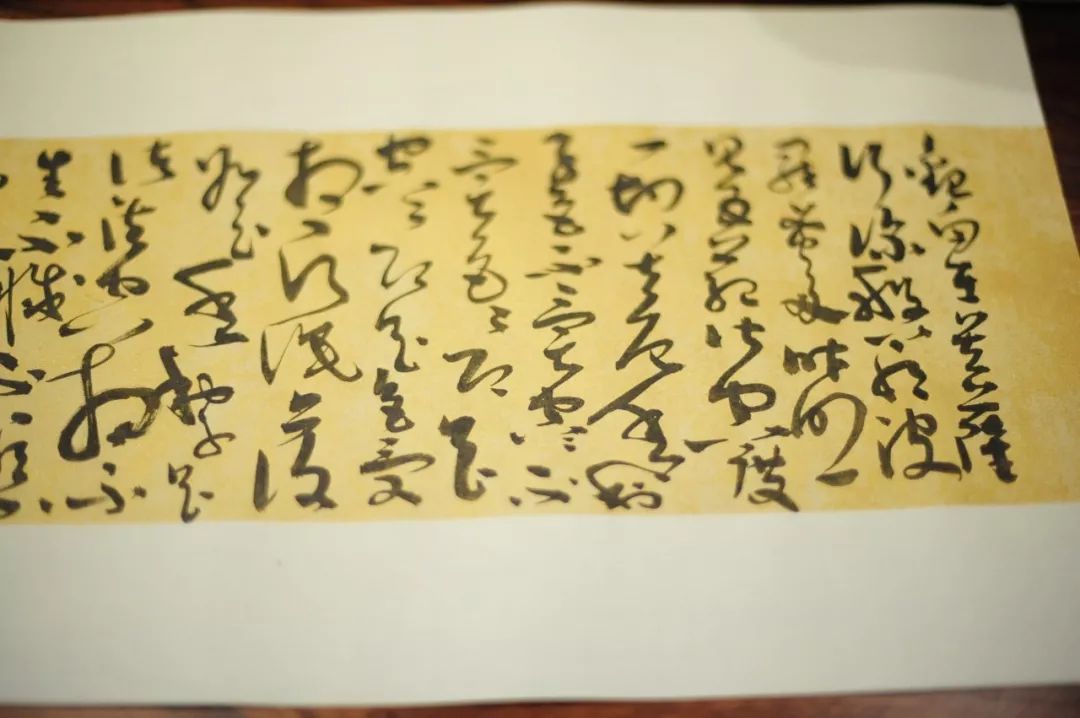 觀自在菩薩
行深般若波
羅蜜多時照
見五蘊皆空度
一切苦厄舍利
子色不異空々不
異色々即是
空々即是色受
想行識亦復
如是舍利子是
諸法空相不
生不滅不垢